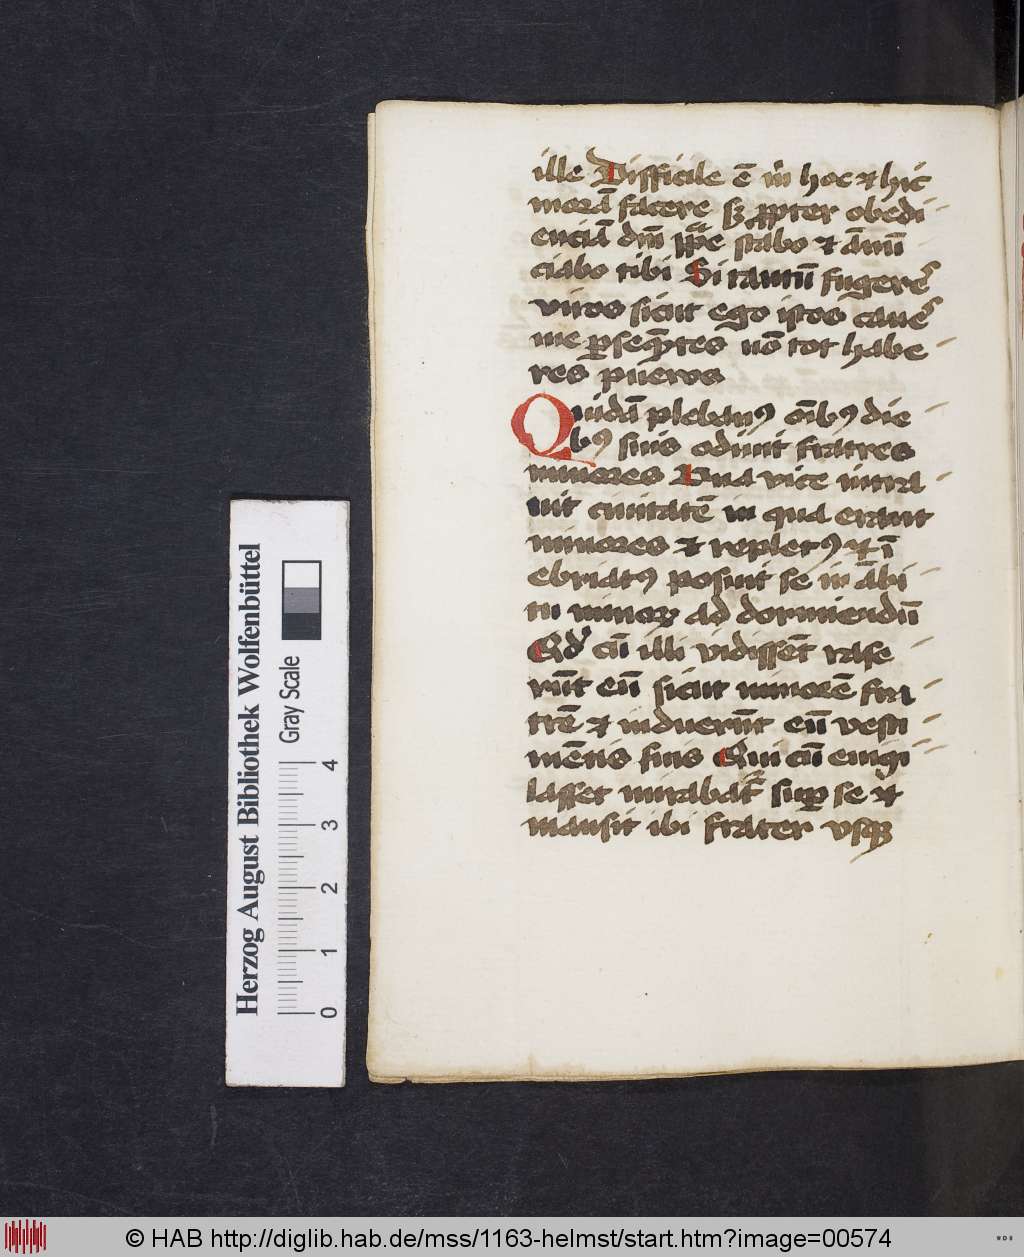 ille Difficile ē m̄ hoc ⁊ hic
morā facere sꝫ ꝓpter obedi
enciā dn̄i pp̄e stabo ⁊ ānū
ciabo tibi Si tantū fugere
viros sicut ego istos canes
me ꝑseqn̄tes nō tot habe
res pueros
Quidā plebanꝰ om̄ibꝰ die
bꝰ suis odiuit fratres
minores Una vice intra
uit ciuitatē in qua erant
minores ⁊ repletꝰ ⁊ ī
ebriatꝰ posuit se in ābi
tu minoꝝ ad dormiendū
cū illi vidissēt rase
rūt eū sicut minorē fra
trē ⁊ induerūt eū vesti
mētis suis Qui cū euigi
lasset mirabat᷑ suꝑ se ⁊
mansit ibi frater vsqꝫ
Herzog August Bibliothek Wolfenbüttel
Gray Scale
0 1 2 3 4
© HAB http://diglib.hab.de/mss/1163-helmst/start.htm?image=00574